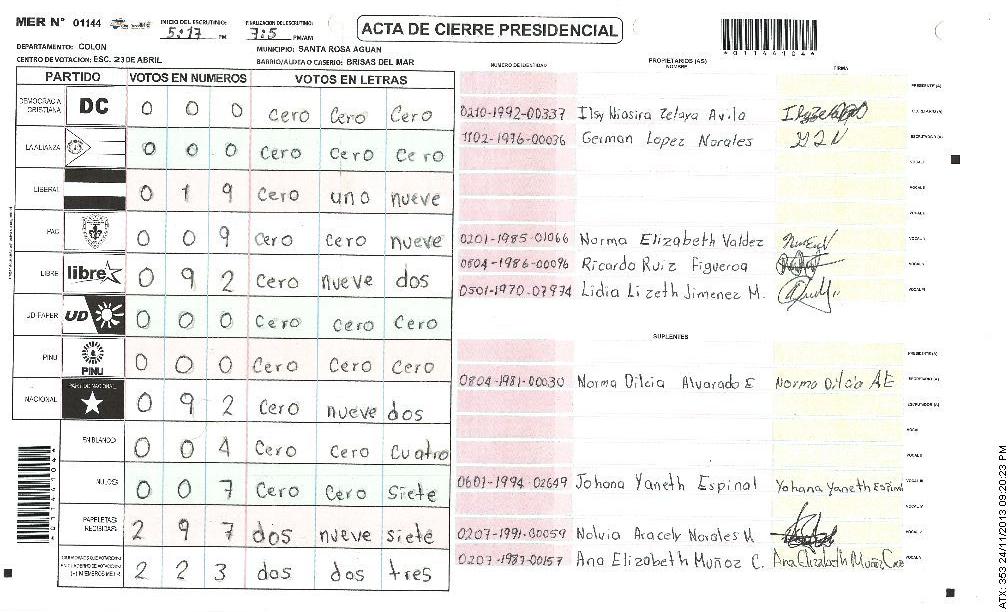 MER N° 01144 INICIO DEL ESCRUTINIO: 5:17 PM FINALIZACION DEL ESCRUTINIO: 7:5 PM/AM ACTA DE CIERRE PRESIDENCIAL
DEPARTAMENTO: COLON MUNICIPIO: SANTA ROSA AGUAN
CENTRO DE VOTACION: ESC. 23 DE ABRIL BARRIO/ALDEA O CASERIO: BRISAS DEL MAR
NUMERO DE IDENTIDAD PROPIETARIOS (AS) NOMBRE FIRMA
PARTIDO VOTOS EN NUMEROS VOTOS EN LETRAS
DEMOCRACIA CRISTIANA DC 0 0 0 cero cero cero
LA ALIANZA 0 0 0 cero cero cero
LIBERAL 0 1 9 cero uno nueve
PAC 0 0 9 cero cero nueve
LIBRE libre 0 9 2 cero nueve dos
UD FAPER UD 0 0 0 cero cero cero
PINU PINU 0 0 0 cero cero cero
NACIONAL 0 9 2 cero nueve dos
EN BLANCO 0 0 4 cero cero cuatro
NULOS 0 0 7 cero cero siete
PAPELETAS RECIBIDAS 2 9 7 dos nueve siete
2 2 3 dos dos tres
PRESIDENTE (A)
0210-1992-00337 Ilsy Niosira Zelaya Avila
1102-1976-00036 German Lopez Norales SECRETARIO (A)
0201-1985-01066 Norma Elizabeth Valdez
0804-1986-00096 Ricardo Ruiz Figueroa
0501-1970-07974 Lidia Lizeth Jimenez M.
SUPLENTES
PRESIDENTE (A)
0804-1981-00030 Norma Dilcia Alvarado E Norma Dilcia AE SECRETARIO (A)
ESCRUTADOR (A)
0601-1994-02649 Johana Yaneth Espinal Yohana Yaneth Espinal
0207-1991-00059 Nolvia Aracely Norales N.
0207-1987-00157 Ana Elizabeth Muñoz C. Ana Elizabeth Muñoz Cruz
ATX: 353 24/11/2013 09:20:23 PM